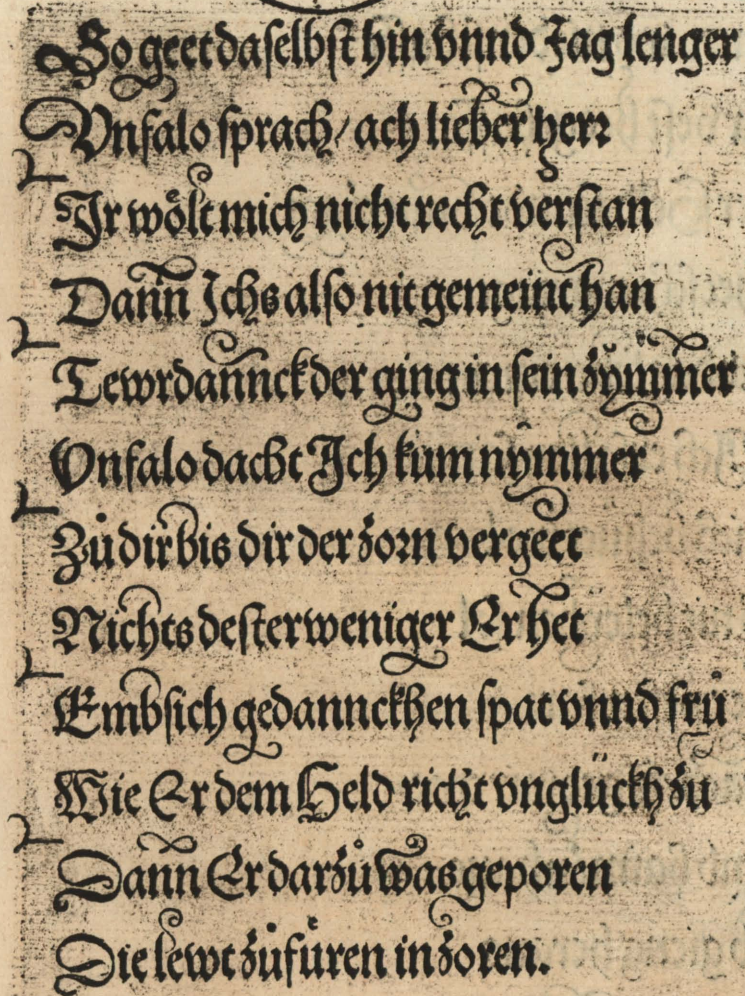 So geet daselbst hin vnnd Jag lenger
Vnfalo sprach/ ach lieber herr
Ir wölt mich nicht recht verstan
Dann Ichs also nit gemeint han
Tewrdannck der ging in sein zymmer
Vnfalo dacht Ich kum nymmer
Zů dir bis dir der zorn vergeet
Nichts desterweniger Er het
Embsich gedannckhen spat vnnd frů
Wie Er dem Held richt vnglückh zů
Dann Er darzů was geporen
Die lewt zůfüren in zoren.